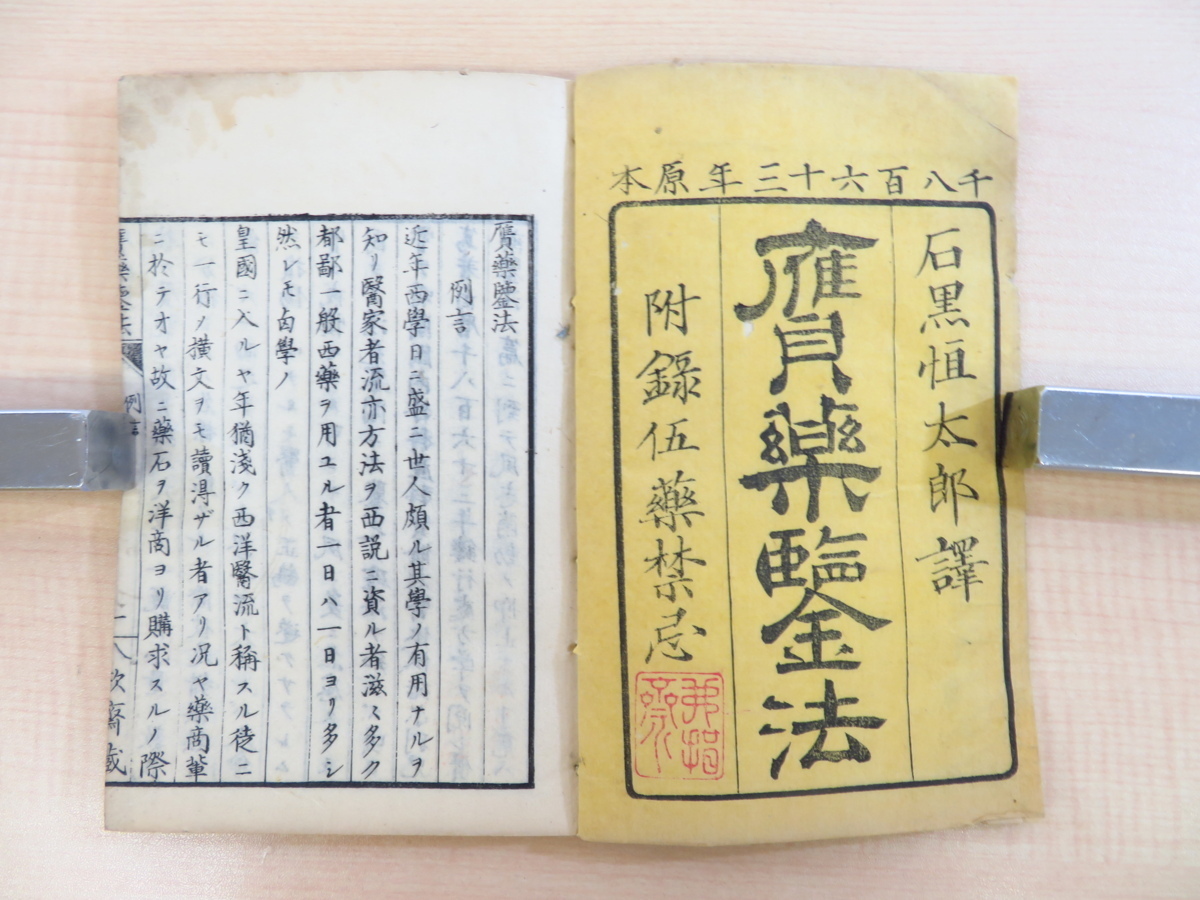 千八百六十三年原本
石黒恒太郎譯
贋藥鑒法
附錄伍藥禁忌
贋藥鑒法
例言
近年西學日ニ盛ニ世人頗ル其學ノ有用ナルヲ
知リ醫家者流亦方法ヲ西説ニ資ル者滋〻多ク
都鄙一般西藥ヲ用ユル者一日ハ一日ヨリ多シ
然レモ自學ノ
皇國ニ入ルヤ年猶淺ク西洋醫流ト稱スル徒ニ
モ一行ノ横文ヲモ讀得ザル者アリ况ヤ藥商輩
ニ於テオヤ故ニ藥石ヲ洋商ヨリ購求スルノ際
贋藥鑒法
例言